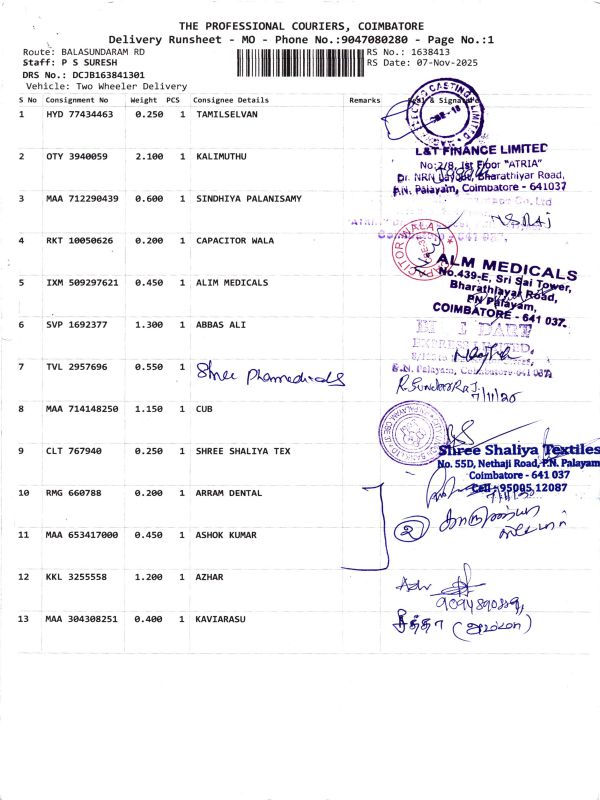 THE PROFESSIONAL COURIERS, COIMBATORE
Delivery Runsheet - MO - Phone No.:9047080280 - Page No.:1
Route: BALASUNDARAM RD RS No.: 1638413
Staff: P S SURESH RS Date: 07-Nov-2025
DRS No.: DCJB163841301
Vehicle: Two Wheeler Delivery
S No Consignment No Weight PCS Consignee Details Remarks & Signature
1 HYD 77434463 0.250 1 TAMILSELVAN
L&T FINANCE LIMITED
2 OTY 3940059 2.100 1 KALIMUTHU
No:2/8, Ist Floor "ATRIA"
Dr. NRN Bharathiyar Road,
P.N. Palayam, Coimbatore - 641037
3 MAA 712290439 0.600 1 SINDHIYA PALANISAMY
4 RKT 10050626 0.200 1 CAPACITOR WALA
CAPACITOR WALA
ALM MEDICALS
No.439-E, Sri Sai Tower,
5 IXM 509297621 0.450 1 ALIM MEDICALS
Bharathiayar Road,
PN Palayam,
COIMBATORE - 641 037.
6 SVP 1692377 1.300 1 ABBAS ALI
DART
EXPRESS LIMITED,
7 TVL 2957696 0.550 1 Shree Pharmedicals
P.N. Palayam, Coimbatore-641 037
R. SundaraRaj.
7/11/25
8 MAA 714148250 1.150 1 CUB
9 CLT 767940 0.250 1 SHREE SHALIYA TEX
Shree Shaliya Textiles
No. 55D, Nethaji Road, P.N. Palayam
Coimbatore - 641 037
Cell : 95095 12087
10 RMG 660788 0.200 1 ARRAM DENTAL
11 MAA 653417000 0.450 1 ASHOK KUMAR
2
12 KKL 3255558 1.200 1 AZHAR
13 MAA 304308251 0.400 1 KAVIARASU